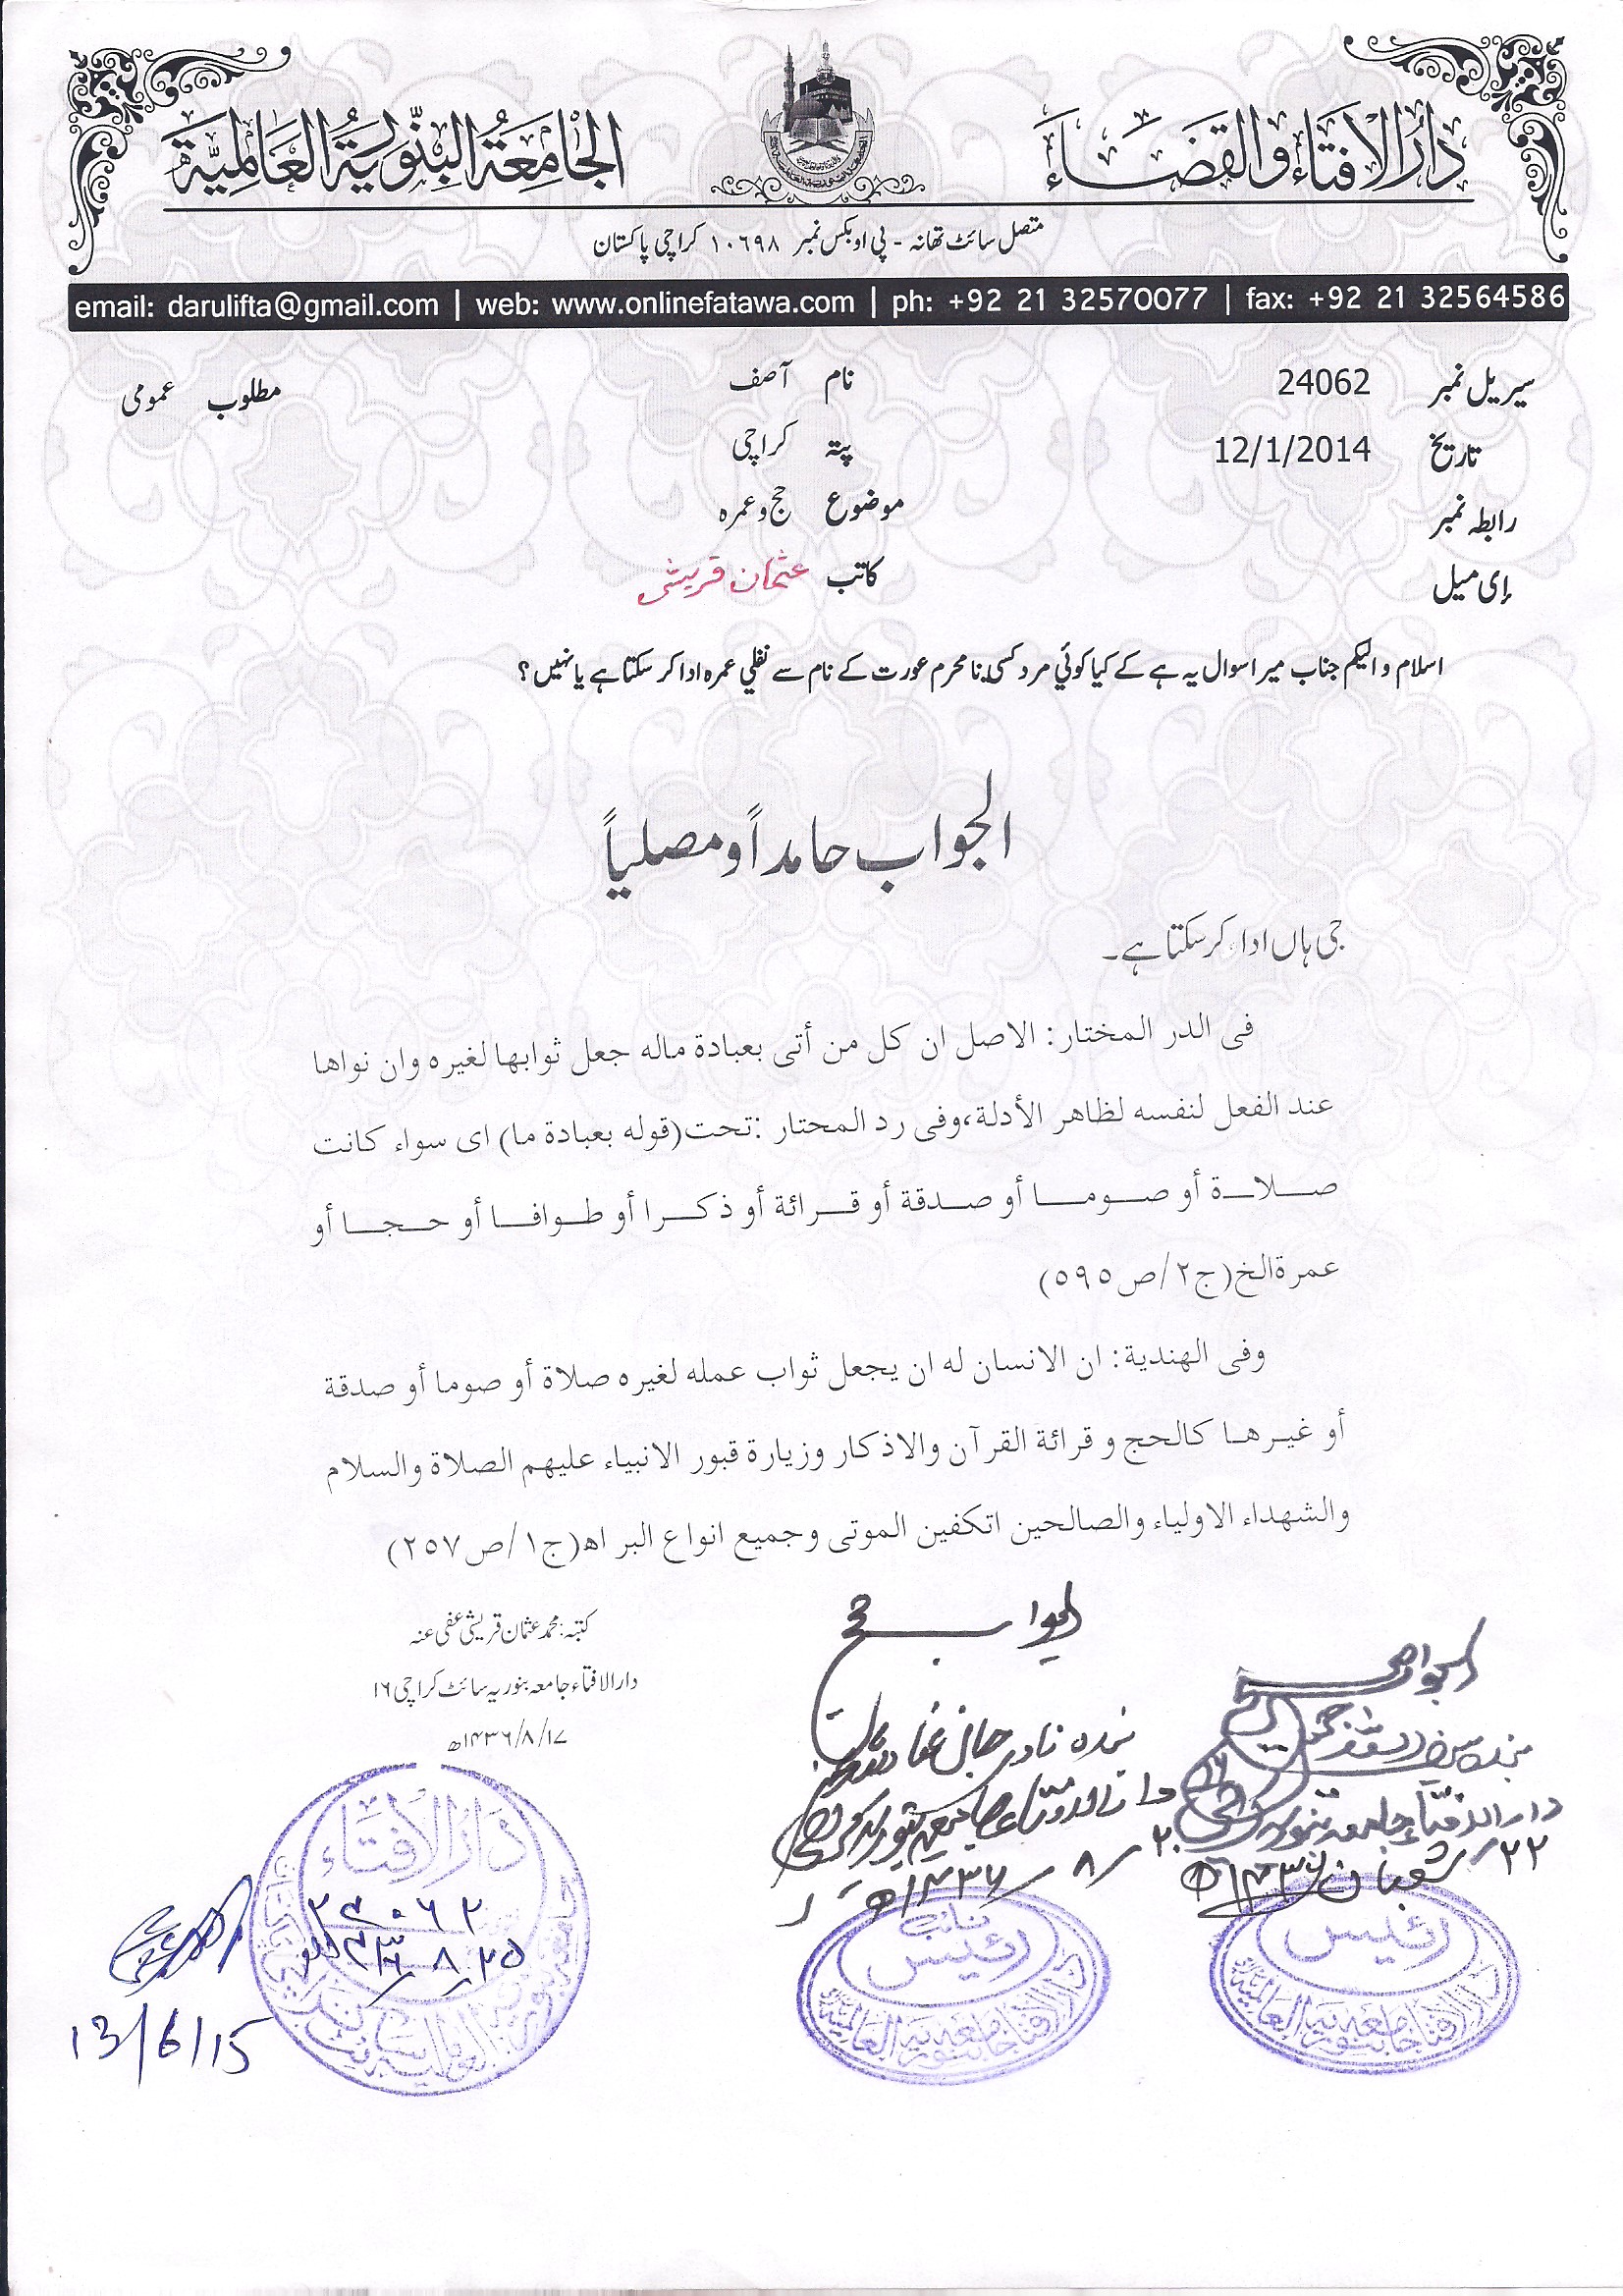 دارالافتاء والقضاء
الجامعة البنورية العالمية
متصل سائٹ تھانہ - پی او بکس نمبر ١٠٦٩٨ کراچی پاکستان
email: darulifta@gmail.com | web: www.onlinefatawa.com | ph: +92 21 32570077 | fax: +92 21 32564586
سیریل نمبر 24062 نام آصف مطلوب عمومی
تاریخ 12/1/2014 پتہ کراچی
رابطہ نمبر موضوع حج و عمرہ
ای میل کاتب عثمان قریشی
اسلام و الیکم جناب میرا سوال یہ ہے کے کیا کوئي مرد کسی نا محرم عورت کے نام سے نفلي عمرہ ادا کر سکتا ہے یا نہیں؟
الجواب حامداً و مصلیاً
جی ہاں ادا کرسکتا ہے۔
فى الدر المختار: الاصل ان كل من أتى بعبادة ماله جعل ثوابها لغيره وان نواها
عند الفعل لنفسه لظاهر الأدلة،وفى رد المحتار :تحت(قوله بعبادة ما) اى سواء كانت
صلاة أو صوما أو صدقة أو قرائة أو ذكرا أو طوافا أو حجا أو
عمرة الخ(ج٢/ص٥٩٥)
وفى الهندية: ان الانسان له ان يجعل ثواب عمله لغيره صلاة أو صوما أو صدقة
أو غيرها كالحج و قرائة القرآن والاذكار وزيارة قبور الانبياء عليهم الصلاة والسلام
والشهداء الاولياء والصالحين اتكفين الموتى وجميع انواع البر اه(ج١/ص٢٥٧)
کتبہ: محمد عثمان قریشی عفی عنہ
دارالافتاء جامعہ بنوریہ سائٹ کراچی ١٦
١٤٣٦/٨/١٧ھ
الجواب صحیح
بندہ نادر جان عفا اللہ عنہ
دارالافتاء جامعہ بنوریہ کراچی
٢٠/٨/١٤٣٦ھ
الجواب صحیح
دارالافتاء جامعہ بنوریہ
٢٢/شعبان ١٤٣٦ھ
دارالافتاء
٢٤٠٦٢
٢٥/٨/٣٦
13/6/15
نائب
رئیس
دارالافتاء جامعہ بنوریہ العالمیہ
رئیس
دارالافتاء جامعہ بنوریہ العالمیہ